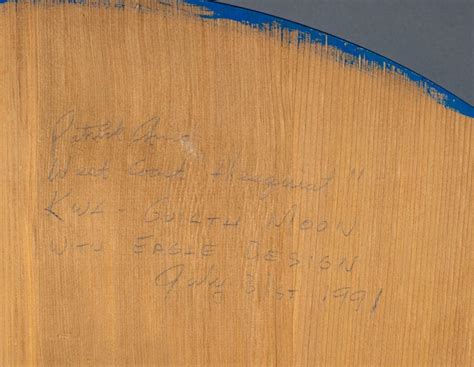 Patrick Amos
West Coast Hesquiat "
KWA-GUILTH MOON
WITH EAGLE DESIGN
July 31ST 1991